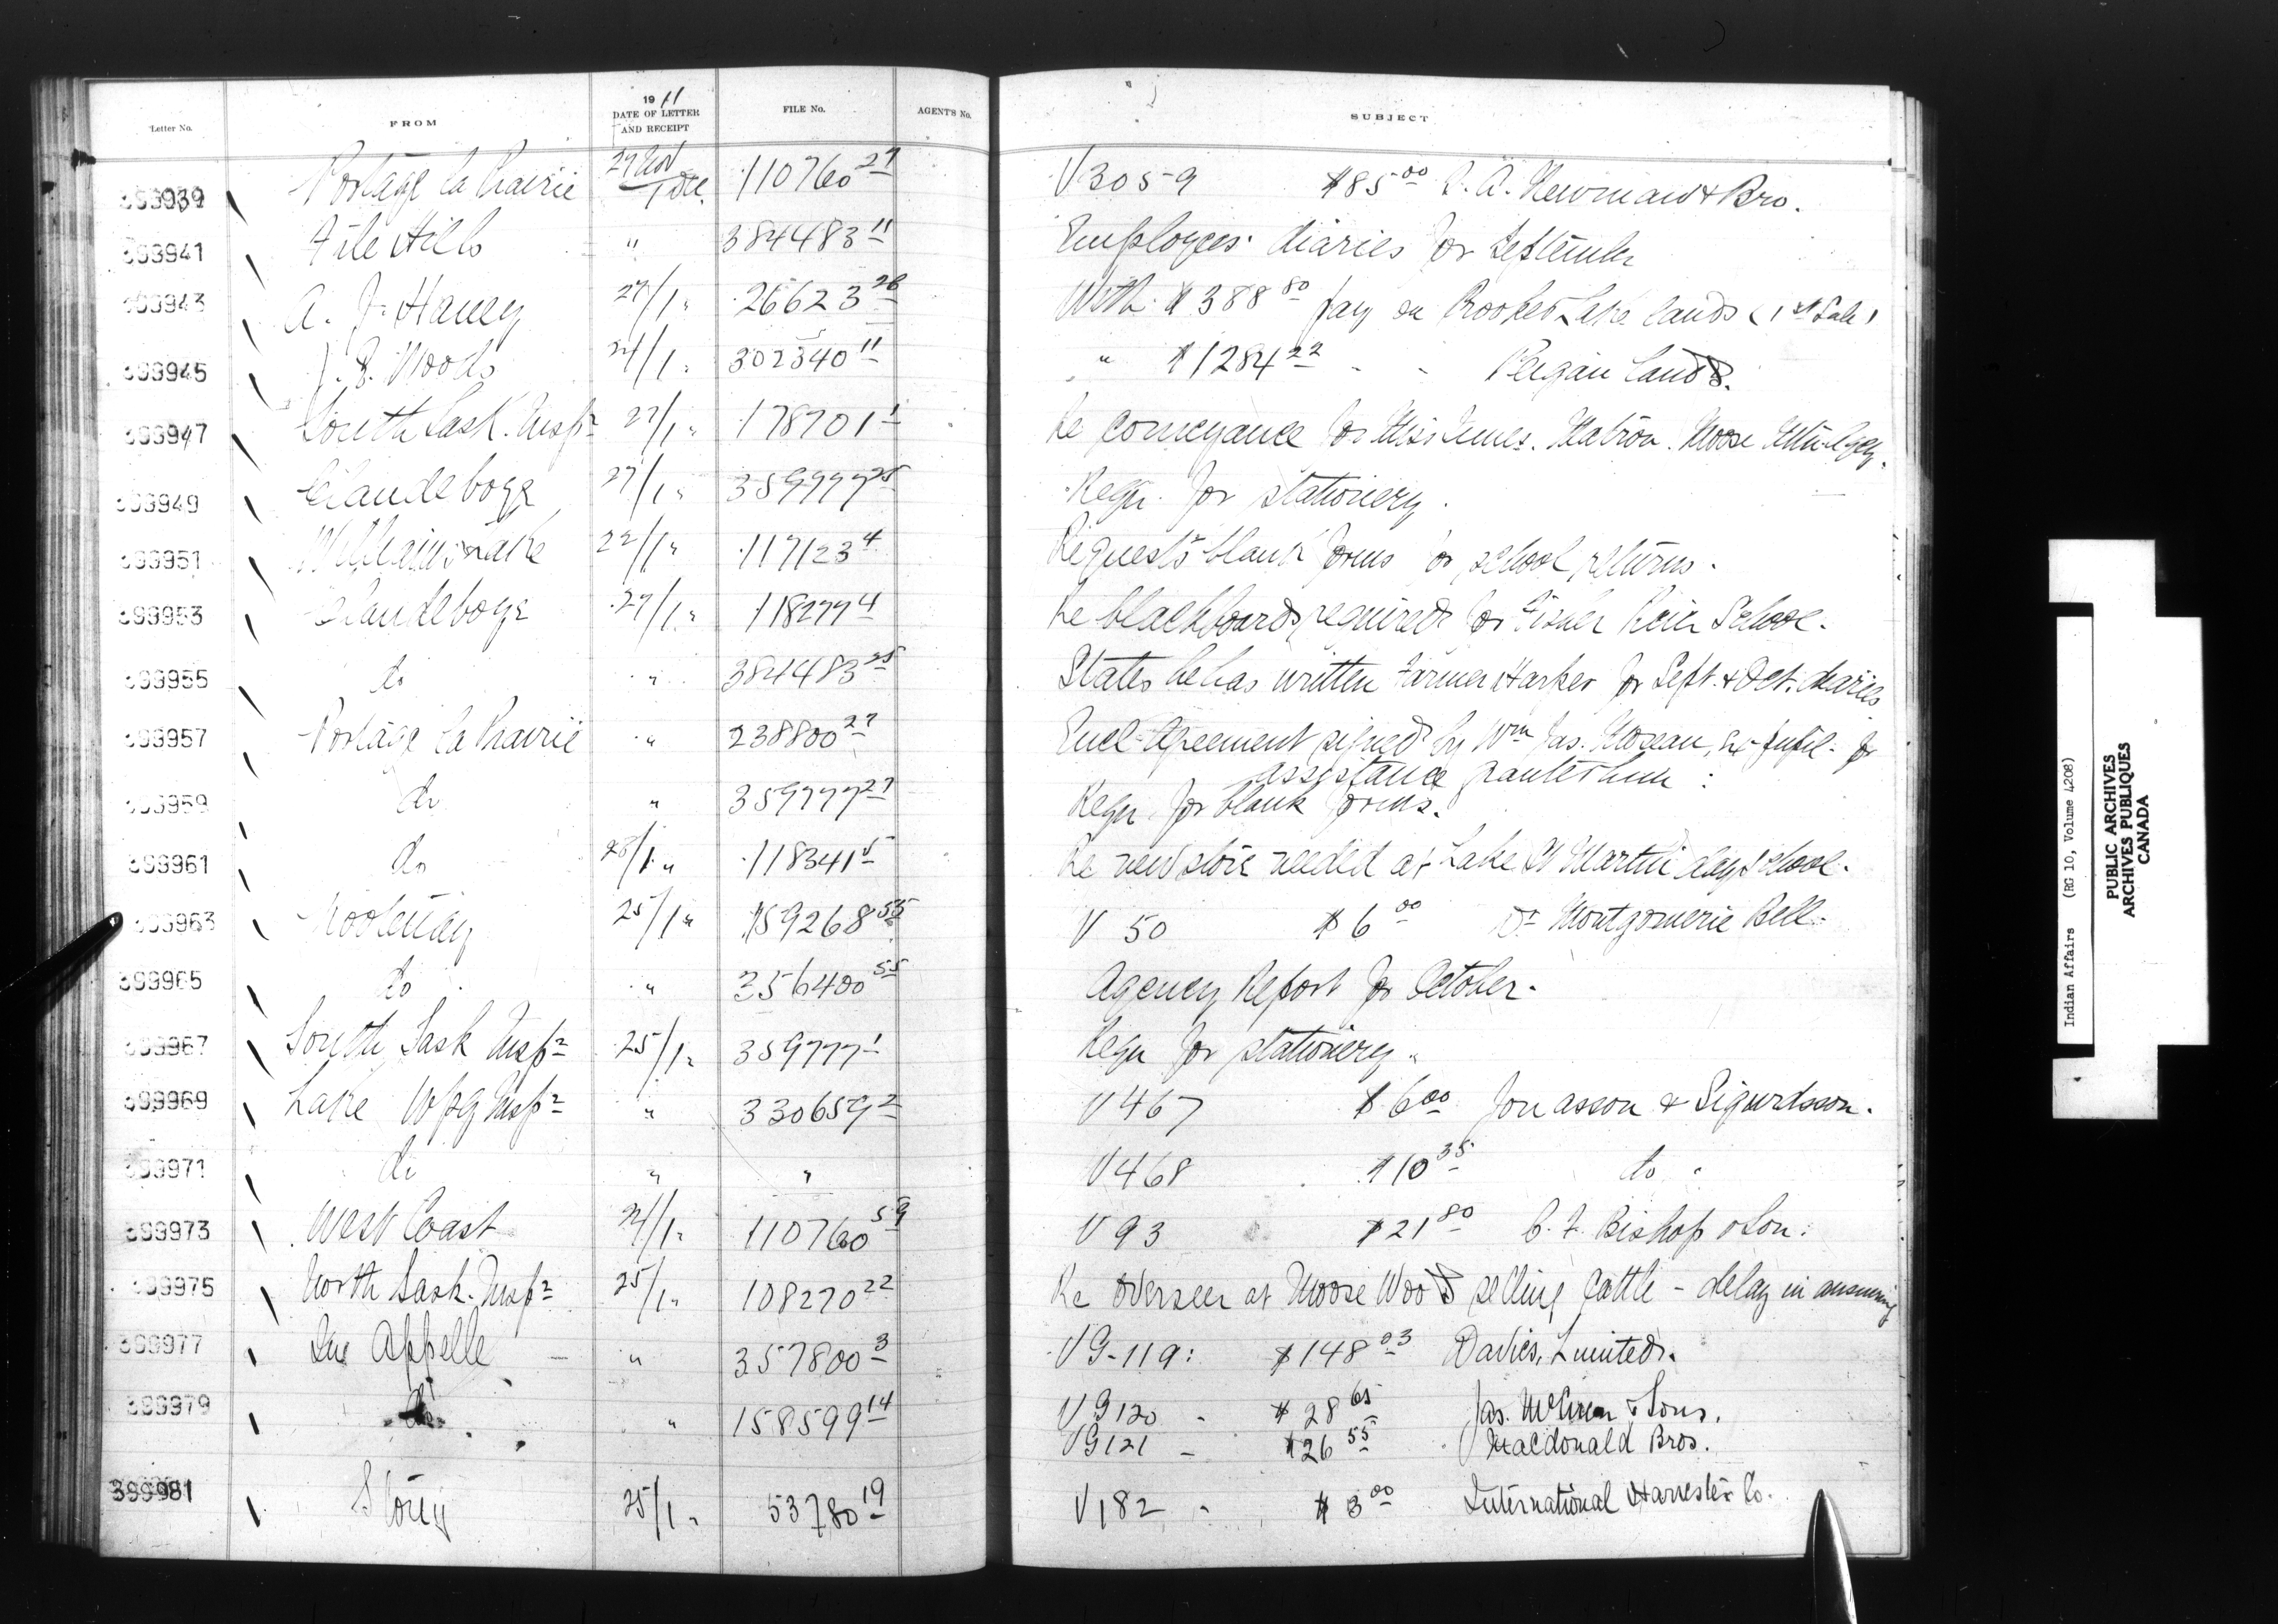 Letter No. FROM 1911 DATE OF LETTER AND RECEIPT FILE No. AGENT'S No. SUBJECT
399939 Portage la Prairie 27 Nov / 1 Dec. 110760 27 V 3059 $85 00 A. Newman & Bro.
399941 File Hills " 384483 11 Employees' diaries for September
399943 A. J. 27/1 " 26623 28 With $388 80 pay on Lake lands (1st Sale)
399945 J. B. Woods 24/1 " 302340 11 " $1284 22 " " Peigan Lands.
399947 South Sask. Insp 27/1 " 178701 1 Re conveyance for Miss Matron. Moose
399949 Clandeboye 27/1 " 359777 25 Reqn. for stationery.
399951 22/1 " 117123 4 Requests blank forms for school returns.
399953 Clandeboye 27/1 " 118277 4 Re blackboards required for Fisher River School.
399955 do " 384483 25 States he has written Farmer Harker for Sept. & Oct. diaries
399957 Portage la Prairie " 238800 27 Encl. Agreement signed by Wm Jas. ex-pupil for
assistance granted him.
399959 do " 359777 27 Reqn for blank forms.
399961 do 28/1 " 118341 5 Re new stove needed at Lake St Martin day school.
399963 Kootenay 25/1 " 159268 55 V 50 $6 00 Dr Montgomerie Bell
399965 do " 356400 55 Agency Report for October.
399967 South Sask Insp 25/1 " 359777 1 Reqn for stationery
399969 Lake Wpg Insp " 330659 2 V 467 $6 00 Jonasson & Sigurdsson.
399971 do " " V 468 $10 35 do
399973 West Coast 24/1 " 110760 59 V 93 $21 80 C. F. Bishop & Son.
399975 North Sask. Insp 25/1 " 108270 22 Re overseer at Moose Woods selling cattle - delay in answering
399977 Qu'Appelle " 357800 3 V G-119: $148 03 Davies, Limited.
399979 do " 158599 14 V G120 - $28 65 Jas. & Sons.
V G121 - $26 55 Macdonald Bros.
399981 Stony 25/1 " 53780 19 V 182 - $3 00 International Harvester Co.
Indian Affairs (RG 10, Volume 4208)
PUBLIC ARCHIVES
ARCHIVES PUBLIQUES
CANADA